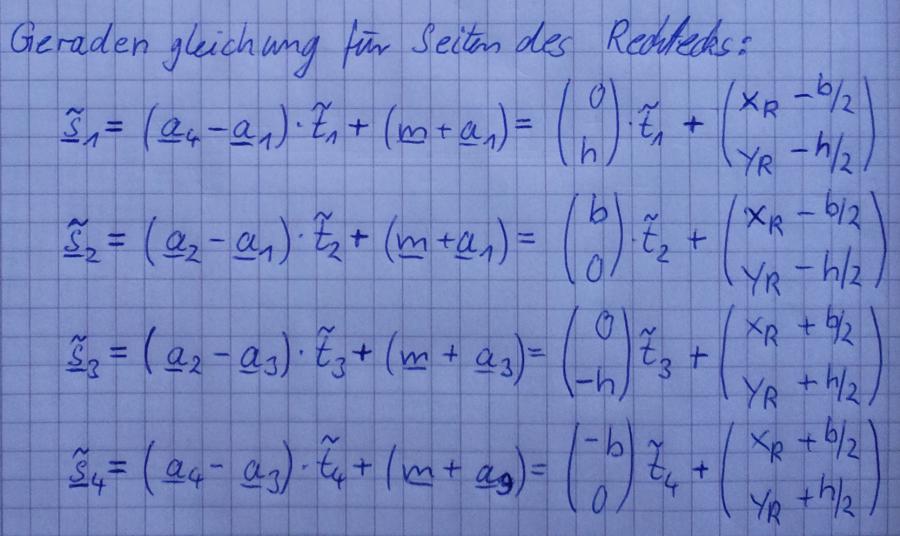 Geraden gleichung für Seiten des Rechtecks:
s̲̃₁ = (a̲₄ − a̲₁) · t̃₁ + (m̲ + a̲₁) = (0 h) · t̃₁ + (x_R − b/2 y_R − h/2)
s̲̃₂ = (a̲₂ − a̲₁) · t̃₂ + (m̲ + a̲₁) = (b 0) · t̃₂ + (x_R − b/2 y_R − h/2)
s̲̃₃ = (a̲₂ − a̲₃) · t̃₃ + (m̲ + a̲₃) = (0 −h) t̃₃ + (x_R + b/2 y_R + h/2)
s̲̃₄ = (a̲₄ − a̲₃) · t̃₄ + (m̲ + a̲₃) = (−b 0) t̃₄ + (x_R + b/2 y_R + h/2)